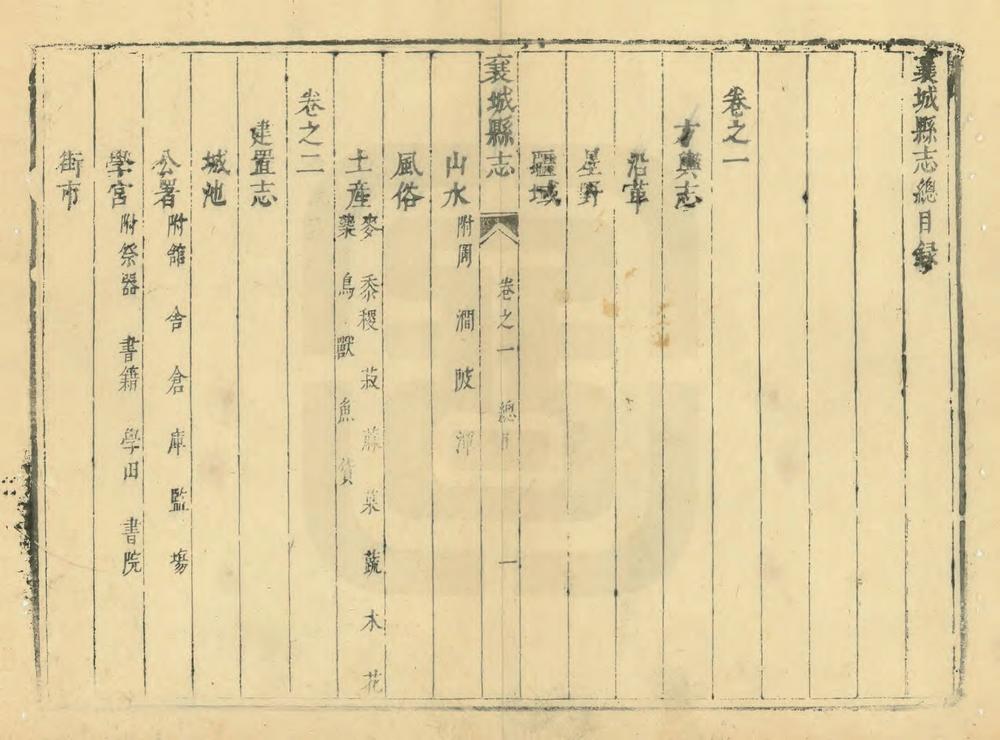 襄城縣志總目録
卷之一
方輿志
沿革
星野
疆域
襄城縣志 卷之一 總目 一
山水 附周 澗 陂 潭
風俗
土產 麥 黍稷 菽 蔴 菜 蔬 木 花
藥 鳥 獸 魚 貨
卷之二
建置志
城池
公署 附館 舍 倉 庫 監 塲
學宮 附祭器 書籍 學田 書院
街市